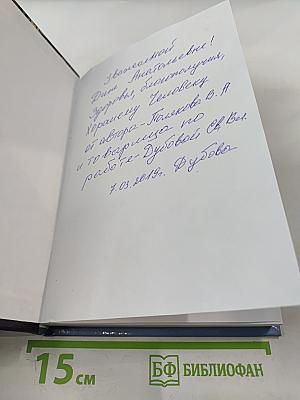 Уважаемой
Дине Анатольевне!
Здоровья, благополучия,
Хорошему Человеку
от автора - Полякова В. А
и товарища по
работе - Дубовой Св. Вл.
7.03.2019г. Дубова
15 см
БФ БИБЛИОФАН